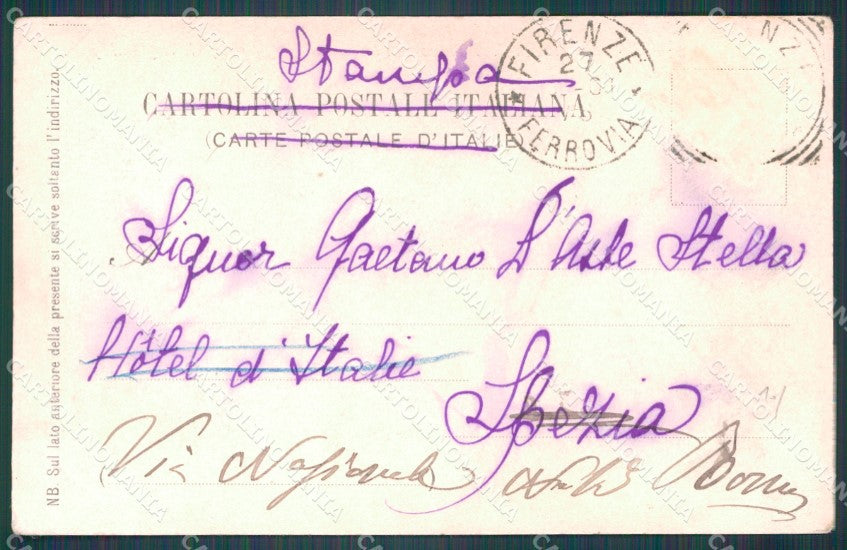 Stampa
CARTOLINA POSTALE ITALIANA
(CARTE POSTALE D'ITALIE)
FIRENZE
27
FERROVIA
NZ
Signor Gaetano D'Aste Stella
Hôtel d'Italie
Spezia
Via Nazionale Roma
NB. Sul lato anteriore della presente si scrive soltanto l'indirizzo.
CARTOLINOMANIA